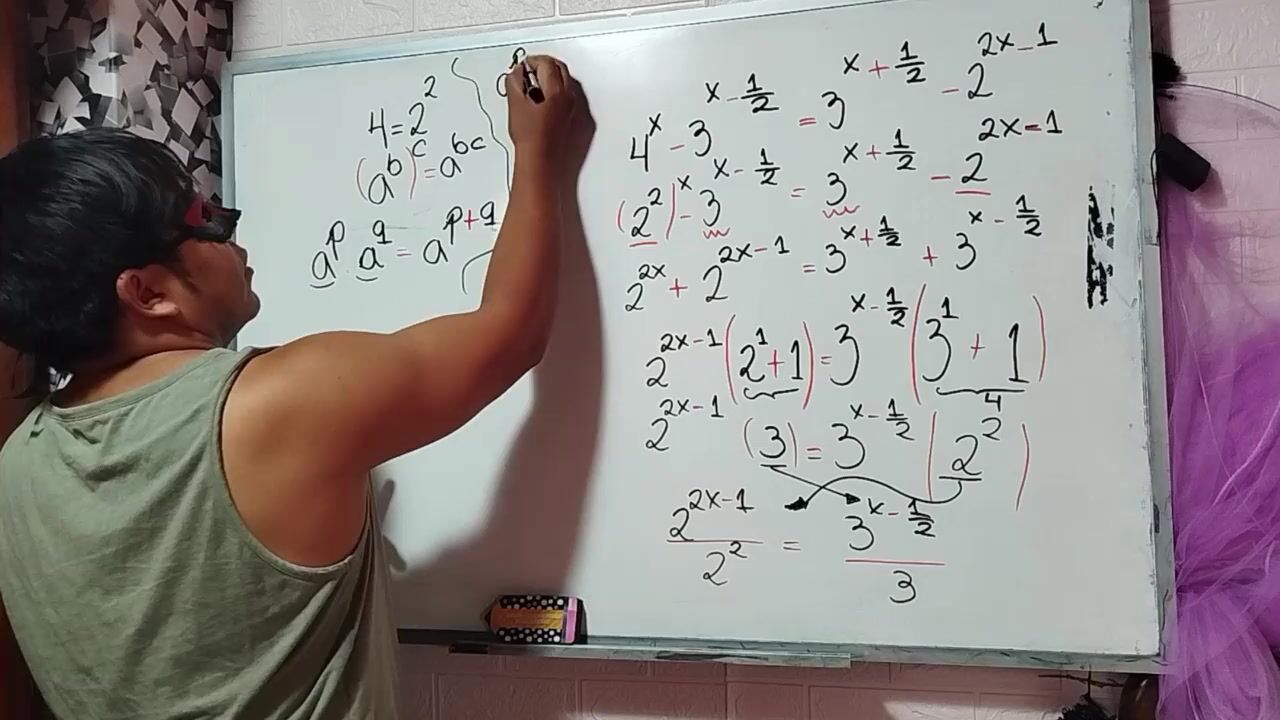 4=2^2
(a^b)^c = a^{bc}
a^p · a^q = a^{p+q}
a^p
4^x - 3^{x-1/2} = 3^{x+1/2} - 2^{2x-1}
(2^2)^x - 3^{x-1/2} = 3^{x+1/2} - 2^{2x-1}
2^{2x} + 2^{2x-1} = 3^{x+1/2} + 3^{x-1/2}
2^{2x-1}(2^1+1) = 3^{x-1/2}(3^1+1)
4
2^{2x-1}(3) = 3^{x-1/2}(2^2)
2^{2x-1}/2^2 = 3^{x-1/2}/3